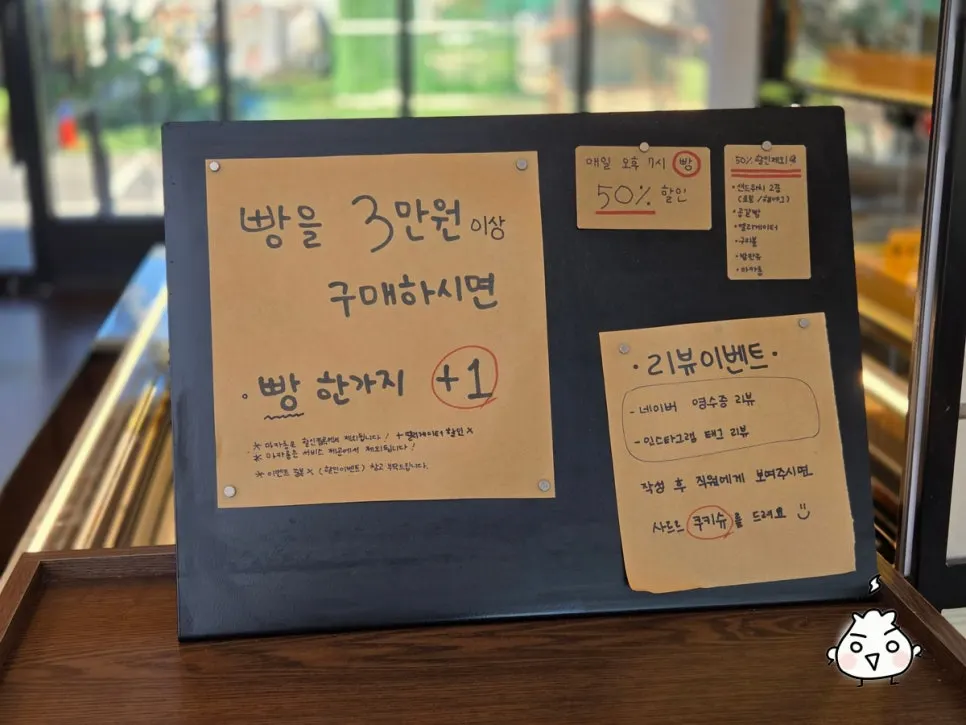 빵을 3만원 이상
구매하시면
· 빵 한가지 +1
※ 마카롱은 할인품목에서 제외됩니다! + 엘리게이터 할인 X
※ 마카롱은 서비스 제공에서 제외됩니다!
※ 이벤트 중복 X (할인이벤트) 참고 부탁드립니다.
매일 오후 7시 빵
50% 할인
50% 할인제외
· 샌드위치 2종
· 공갈빵
· 엘리게이터
· 마카롱
· 리뷰이벤트 ·
- 네이버 영수증 리뷰
- 인스타그램 태그 리뷰
작성 후 직원에게 보여주시면
사르르 쿠키슈를 드려요